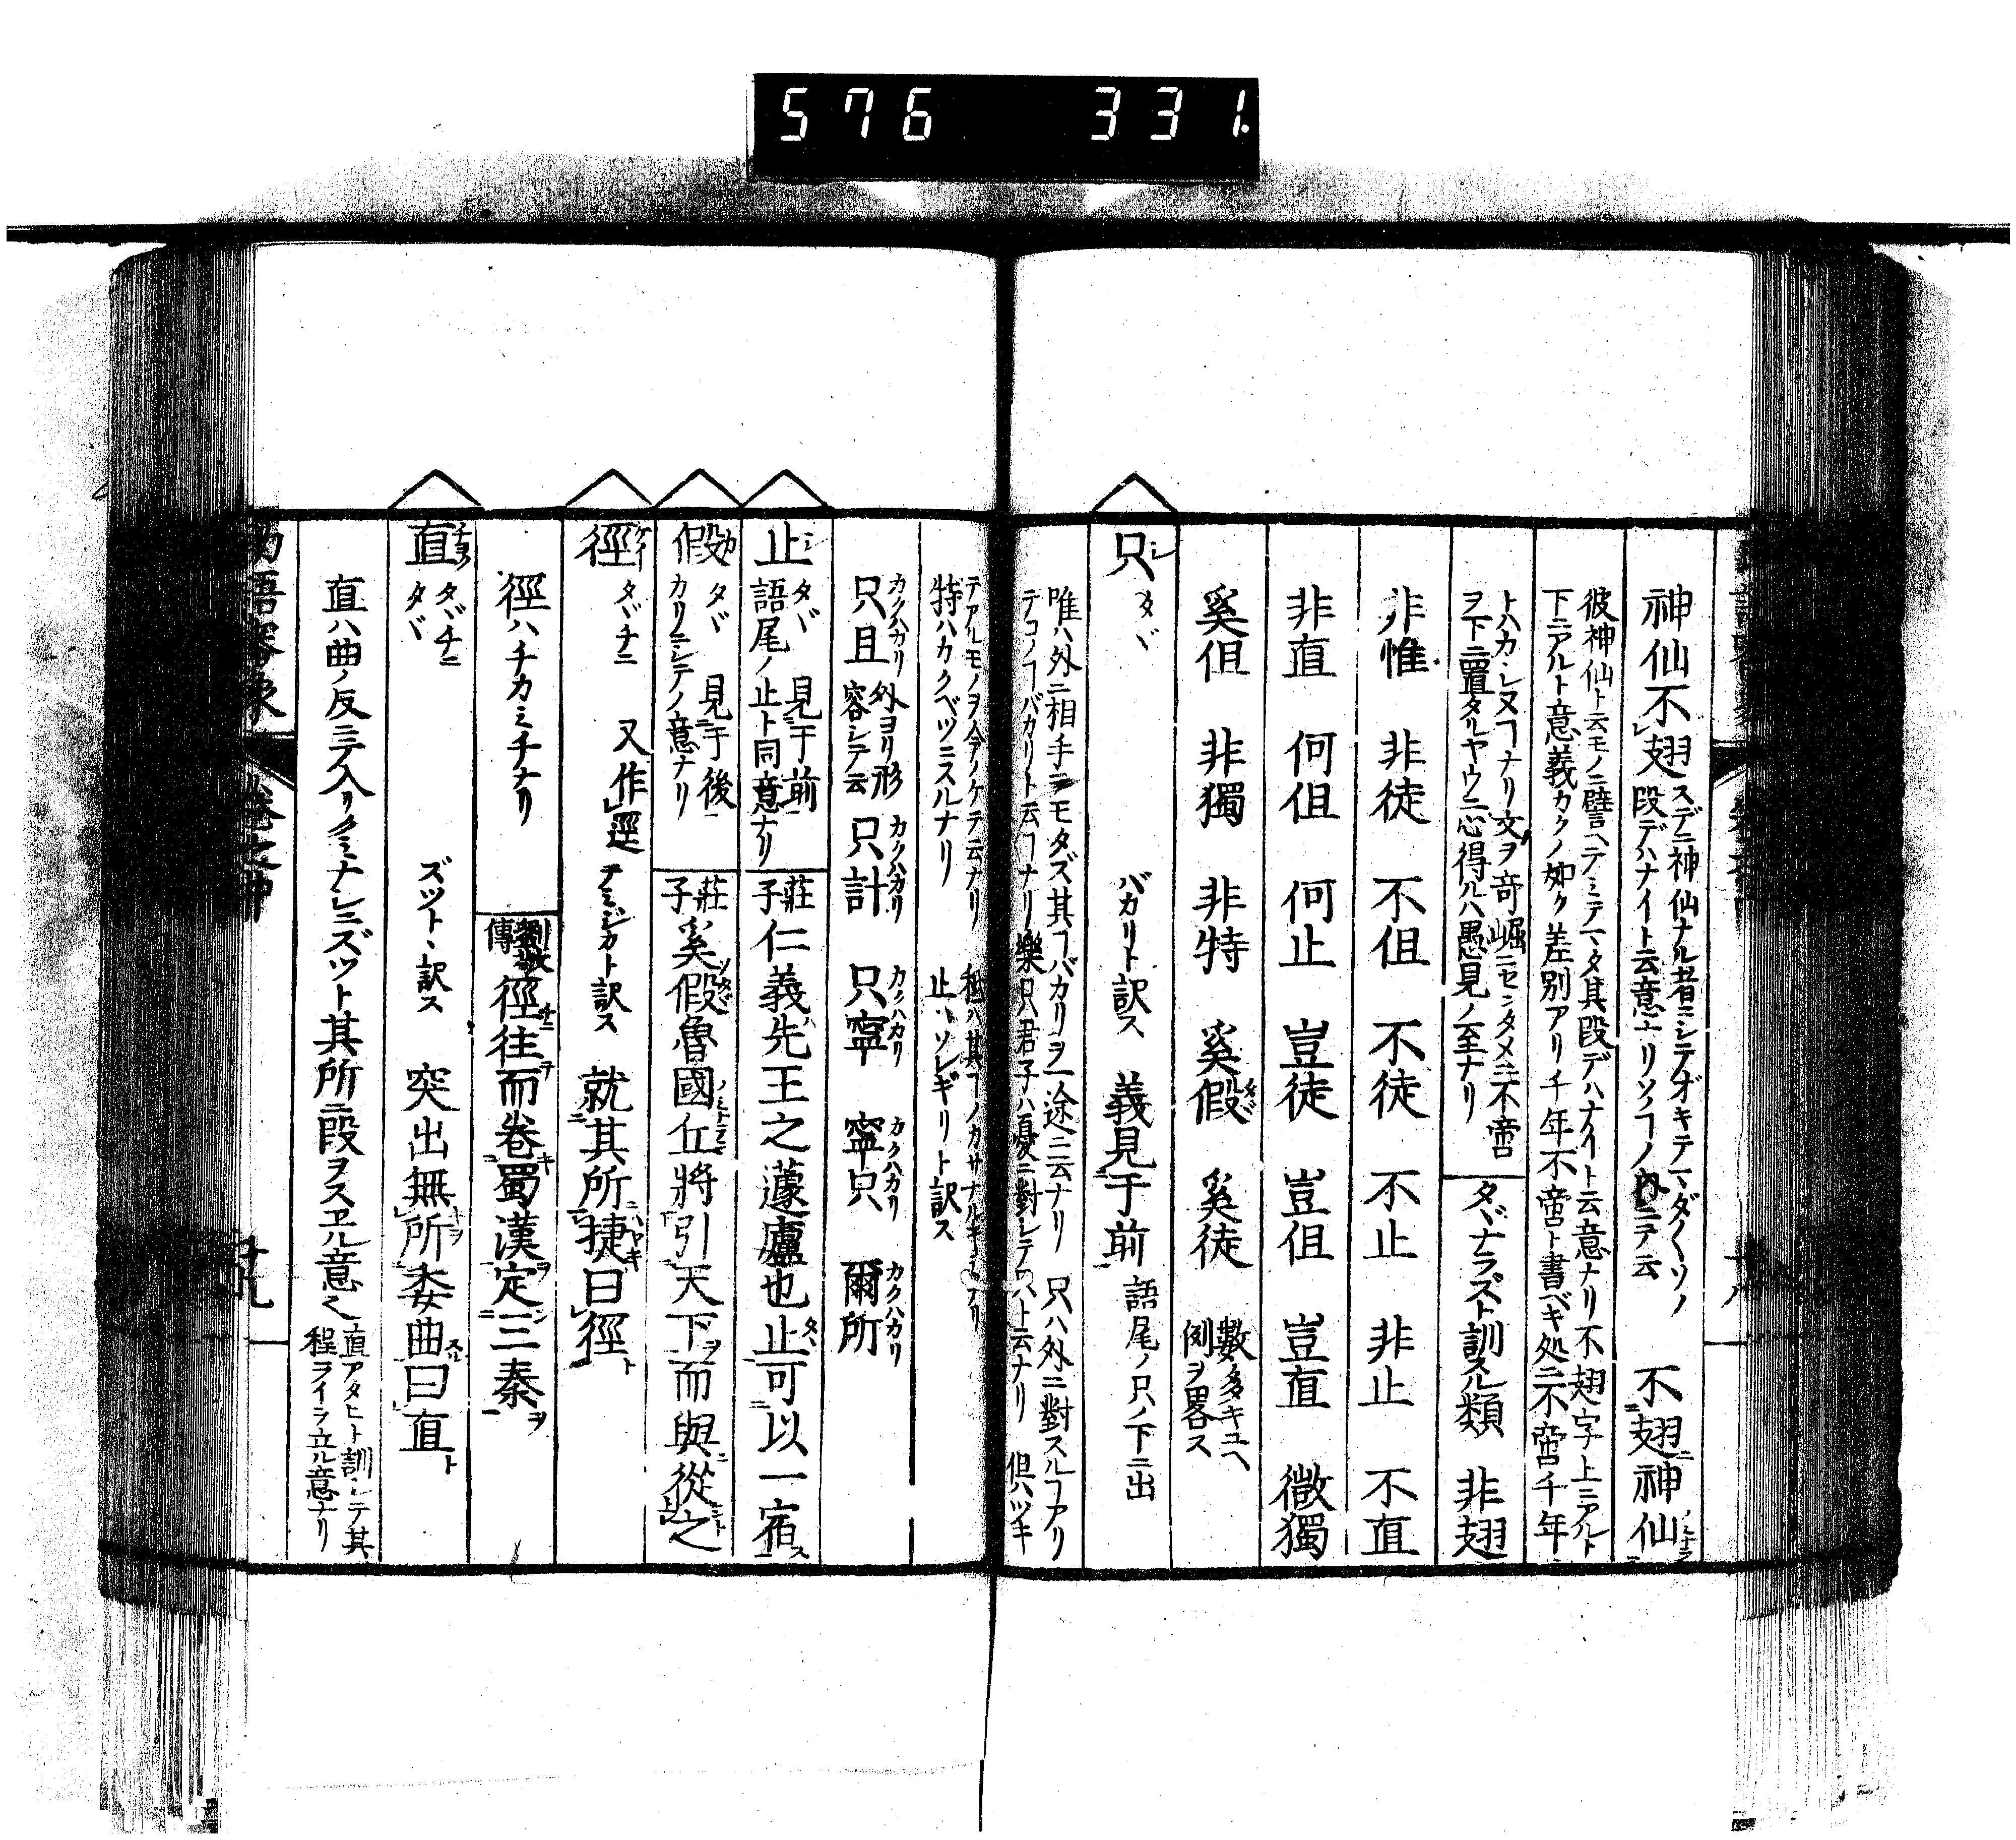 576 331.
神仙不翅 スデニ神仙ナル者ニシテオキテマダ〱ソノ
段デハナイト云意ナリソノヿノ内ニテ云 不翅神仙
彼神仙ト云モノニ譬ヘテミテマタ其段デハナイト云意ナリ不翅字上ニアルト
下ニアルト意義カクノ如ク差別アリ千年不啻ト書ベキ処ニ不啻千年
トハカヽレヌヿナリ文ヲ奇崛ニセンタメニ不啻
ヲ下ニ置タルヤウニ心得ルハ愚見ノ至ナリ
タヾナラズト訓スル類 非翅
非惟 非徒 不但 不徒 不止 非止 不直
非直 何但 何止 豈徒 豈但 豈直 微獨
奚但 非獨 非特 奚假 奚徒 數多キユヘ
例ヲ畧ス
只 シ タヾ バカリト訳ス 義見于前 語尾ノ只ノ下ニ出
唯ハ外ニ相手ヲモタズ其ヿバカリヲ一途ニ云ナリ 只ハ外ニ對スルヿアリ
テコノヿバカリト云ヿナリ樂只君子ハ憂ニ對シテノ只ト云ナリ 但ハツキ
テアルモノヲ今ノケテ云ナリ 祗ハ其ヿノカサナルキミナリ
特ハカクベツニスルナリ 止ハソレギリト訳ス
只且 カクハカリ 外ヨリ形
容シテ云 只計 カクハカリ 只寧 カクハカリ 寧只 カクハカリ 爾所 カクハカリ
止 シ タヾ 見于前
語尾ノ止ト同意ナリ 莊子 仁義先王之蘧廬也止可以一宿
假 カ タヾ 見于後
カリニシテノ意ナリ 莊子 奚假魯國丘將引天下而與從之
徑 ケイ タヾチニ 又作逕 チミジカト訳ス 就其所捷曰徑
徑ハチカミチナリ 劉敬傳 徑往而卷蜀漢定三秦
直 チヨク タヾチニ
タヾ ズツトヽ訳ス 突出無所委曲曰直
直ハ曲ノ反ニテ入リクミナシニズツト其所ニ段ヲスヱル意也 直アタヒト訓シテ其
程ライヲ立ル意ナリ